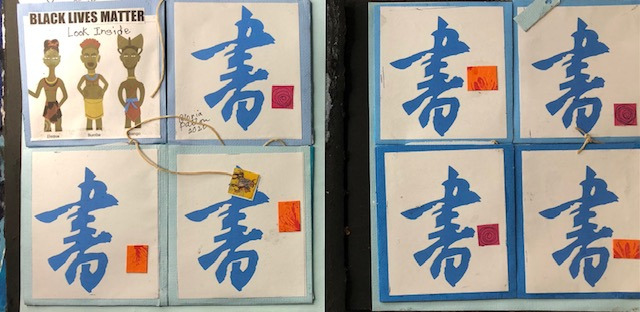 BLACK LIVES MATTER
Look Inside
書
書
書
書
書
書
書
2020